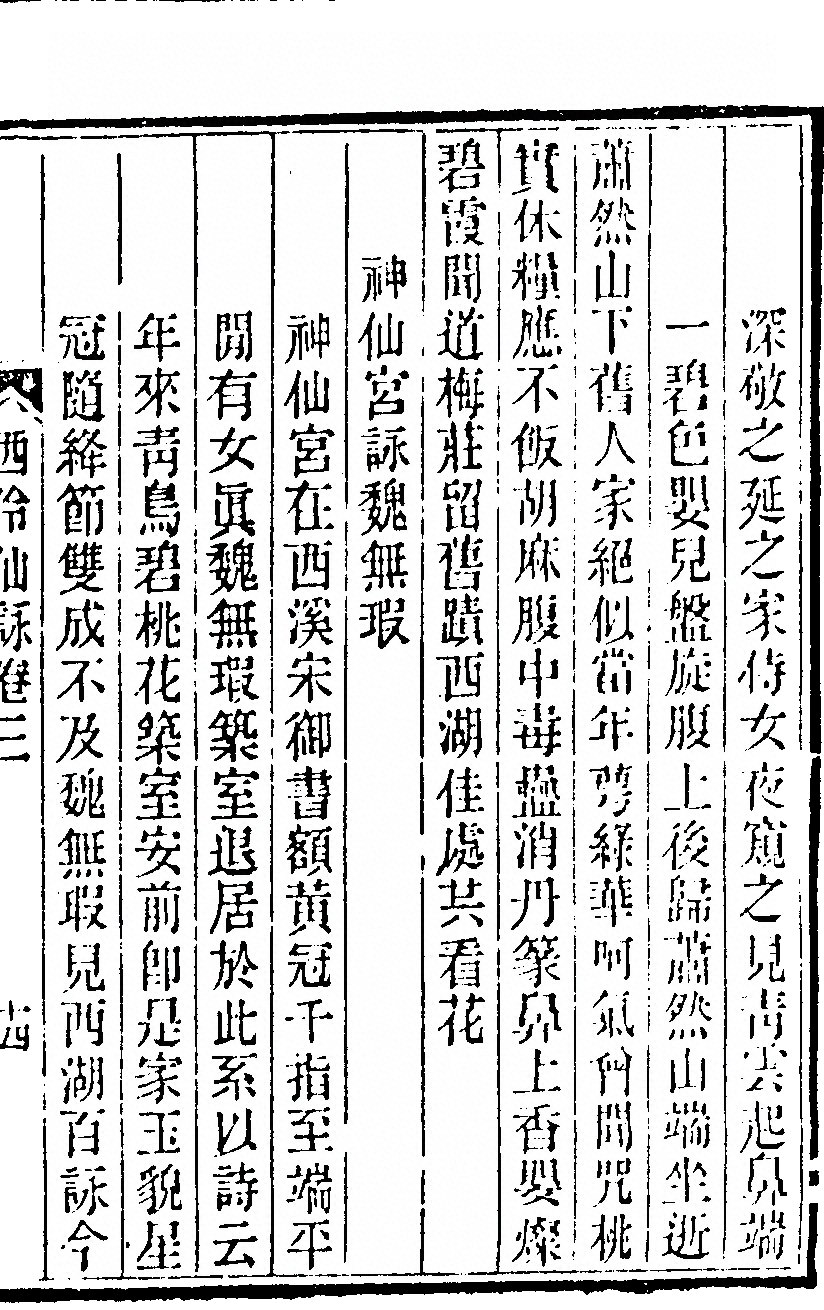 深敬之延之家侍女夜窺之見青雲起鼻端
一碧色嬰兒盤旋腹上後歸蕭然山端坐逝
蕭然山下舊人家絕似當年萼綠華呵氣曾聞咒桃
實休糧應不飯胡麻腹中毒蠱消丹篆鼻上香嬰燦
碧霞聞道梅莊留舊蹟西湖佳處共看花
神仙宮詠魏無瑕
神仙宮在西溪宋御書額黃冠千指至端平
閒有女眞魏無瑕築室退居於此系以詩云
年來青鳥碧桃花築室安前卽是家玉貌星
冠隨絳節雙成不及魏無瑕見西湖百詠今
西泠仙詠卷三
十四